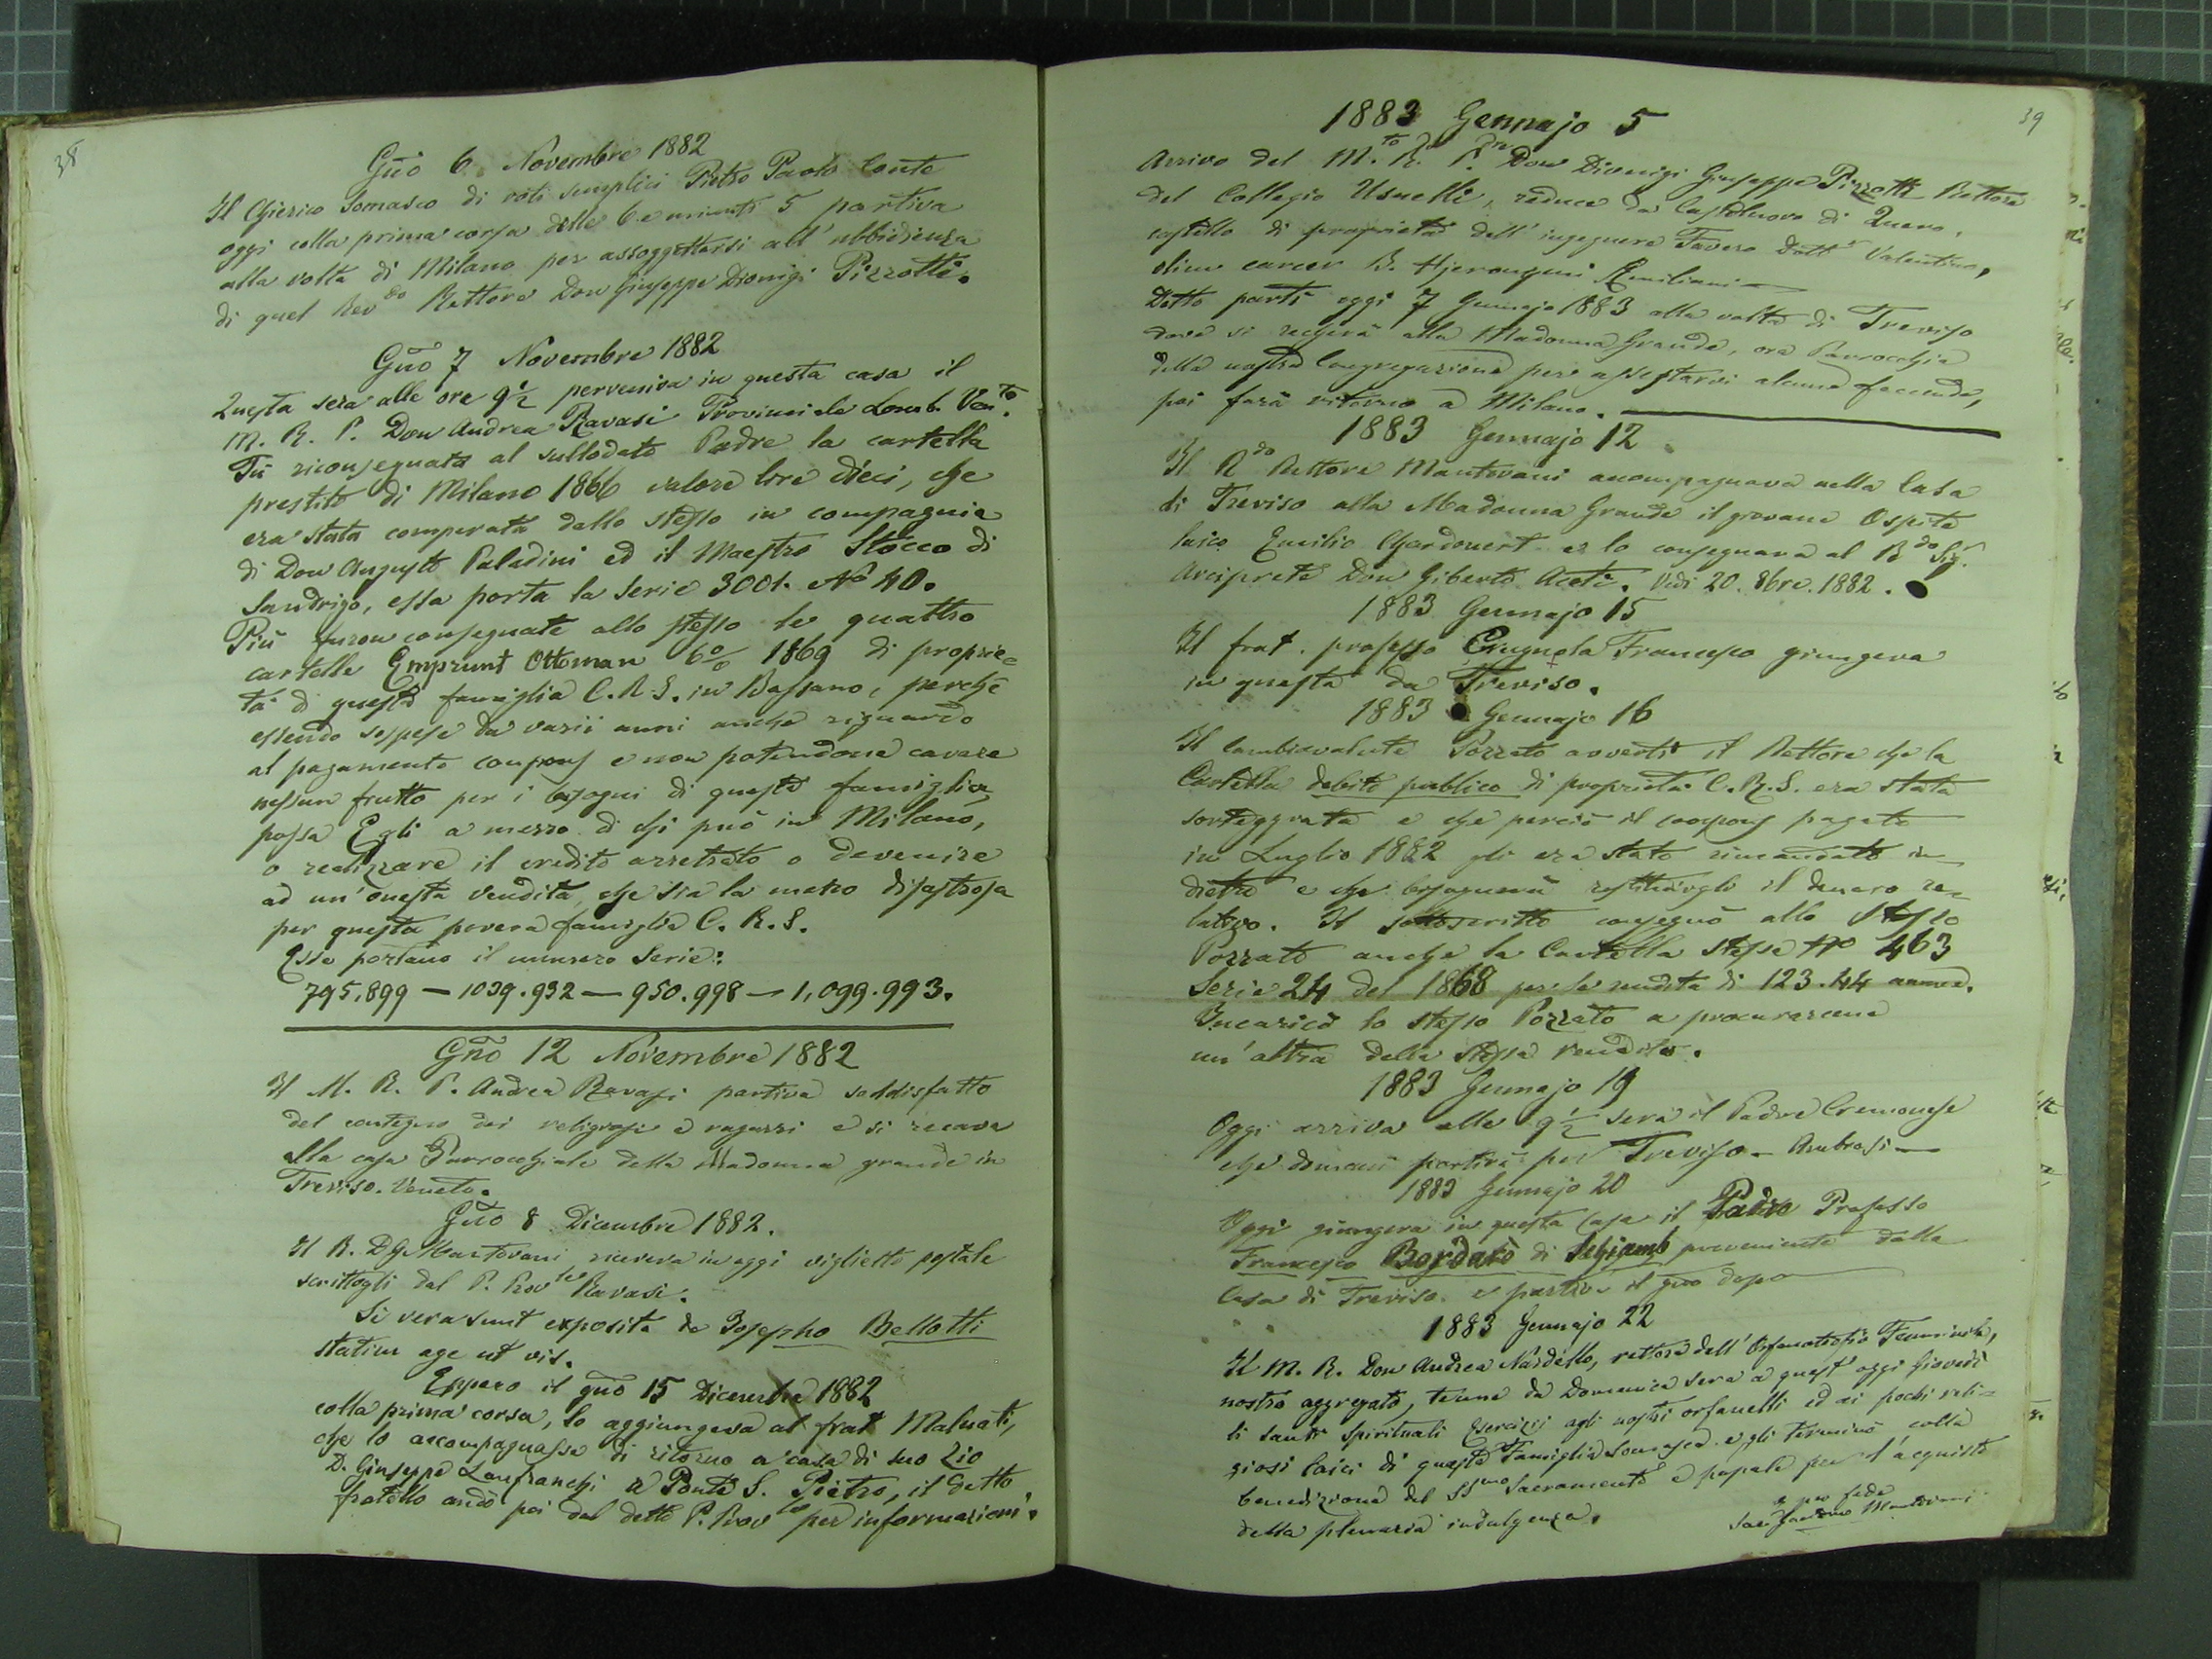 38
Gno 6 Novembre 1882
Il Chierico Somasco di voti semplici Pietro Paolo Conte
oggi colla prima corsa delle 6 e minuti 5 partiva
alla volta di Milano per assoggettarsi all'ubbidienza
di quel Revdo Rettore Don Giuseppe Dionigi Pizzotti.
Gno 7 Novembre 1882
Questa sera alle ore 9½ perveniva in questa casa il
M. R. P. Don Andrea Ravasi Provinciale Lomb. Vento.
Fu riconsegnata al sullodato Padre la cartella
prestito di Milano 1866 valore lire dieci, che
era stata comperata dallo stesso in compagnia
di Don Augusto Paladini ed il Maestro Stocco di
Sandrigo, essa porta la Serie 3001. No 40.
Più furon consegnate allo stesso le quattro
cartelle Emprunt Ottoman 6% 1869 di proprie=
tà di questa famiglia C. R. S. in Bassano, perchè
essendo sospese da varii anni anche riguardo
al pagamento coupons e non potendone cavare
nessun frutto per i bisogni di questa famiglia,
possa Egli a mezzo di chi può in Milano,
o realizzare il credito arretrato o devenire
ad un'onesta vendita, che sia la meno disastrosa
per questa povera famiglia C. R. S.
Esse portano il numero Serie:
795.899 — 1039.932 — 950.998 — 1,099.993.
Gno 12 Novembre 1882
Il M. R. P. Andrea Ravasi partiva soddisfatto
del contegno dei religiosi e ragazzi e si recava
alla casa Parrocchiale della Madonna grande in
Treviso. Veneto.
Gno 8 Dicembre 1882.
Il R. D G Mantovani riceveva in oggi viglietto postale
scrittogli dal P. Provle Ravasi.
Si vera sunt exposita de Josepho Bellotti
statim age ut vis.
Eppero il gno 15 Dicembre 1882
colla prima corsa, lo aggiungeva al frat Malnati,
che lo accompagnasse di ritorno a casa di suo Zio
D. Giuseppe Lanfranchi a Ponte S. Pietro, il detto
fratello andò poi dal detto P. Provle per informazioni.
39
1883 Gennajo 5
Arrivo del M.to R.do P.re Don Dionigi Giuseppe Pizzotti Rettore
del Collegio Usuelli, reduce da Castelnuovo di Quero,
castello di proprietà dell'ingegnere Favero Dottr Valentino,
olim carcer B. Hjeronymi Emiliani —
Detto partì oggi 7 Gennajo 1883 alla volta di Treviso
dove si recherà alla Madonna Grande, ora Parrocchia
della nostra Congregazione per assestarvi alcune faccende,
poi farà ritorno a Milano.
1883 Gennajo 12
Il Rdo Rettore Mantovani accompagnava nella Casa
di Treviso alla Madonna Grande il giovane Ospite
laico Emilio Chardouert e lo consegnava al Rdo Sig.
Arciprete Don Giberto Aceti. Vedi 20. 8bre. 1882.
1883 Gennajo 15
Il frat. professo Crugnola Francesco giungeva
in questa da Treviso.
1883 Gennajo 16
Il Cambiavalute Pozzato avvertì il Rettore che la
Cartella debito pubblico di proprietà C. R. S. era stata
sorteggiata e che perciò il coupons pagato
in Luglio 1882 gli era stato rimandato in
dietro e che bisognava restituirgli il denaro re=
lativo. Il sottoscritto consegnò allo stesso
Pozzato anche la Cartella stessa No 463
Serie 24 del 1868 per la rendita di 123.44 annue.
Incaricò lo stesso Pozzato a procurarcene
un'altra della stessa rendita.
1883 Gennajo 19
Oggi arriva alle 9½ sera il Padre Cremonese
che domani partirà per Treviso — Ambrosi —
1883 Gennajo 20
Oggi giungeva in questa Casa il Padre Professo
Francesco Bordato di proveniente dalla
Casa di Treviso. e partiva il gno dopo
1883 Gennajo 22
Il M. R. Don Andrea Nardello, rettore dell'Orfanotrofio Femminile,
nostro aggregato, tenne da Domenica sera a quest'oggi Giovedì
li santi Spirituali Esercizij agli nostri orfanelli ed ai pochi reli=
giosi laici di questa Famiglia Somasca e gli terminò colla
benedizione del SSmo Sacramento e papale per l'acquisto
della plenaria indulgenza.
e per fede
Mantovani